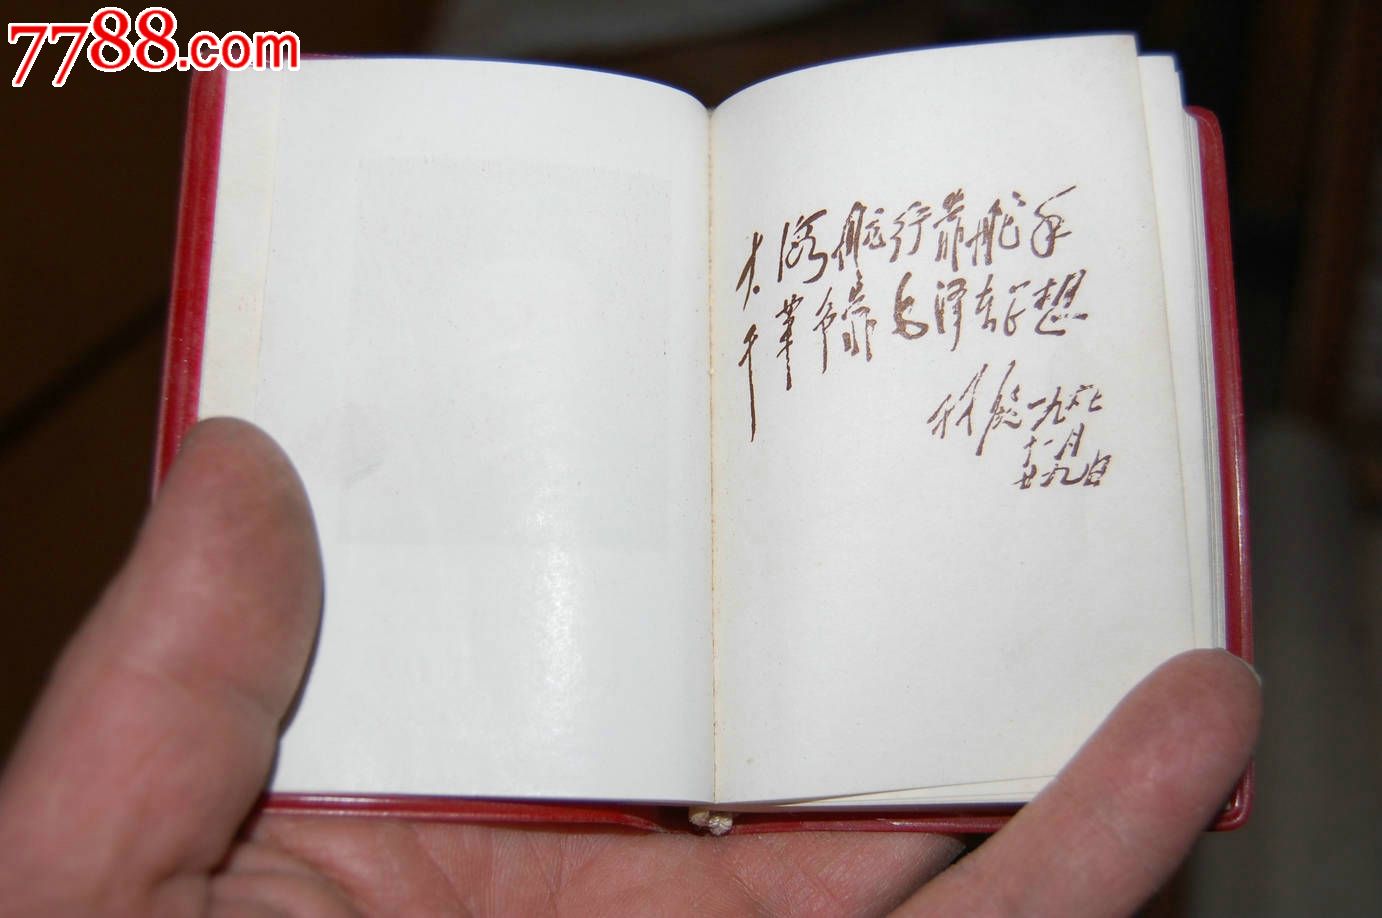 7788.com
大海航行靠舵手
干革命靠毛泽东思想
林彪一九六七
十一月
廿九日